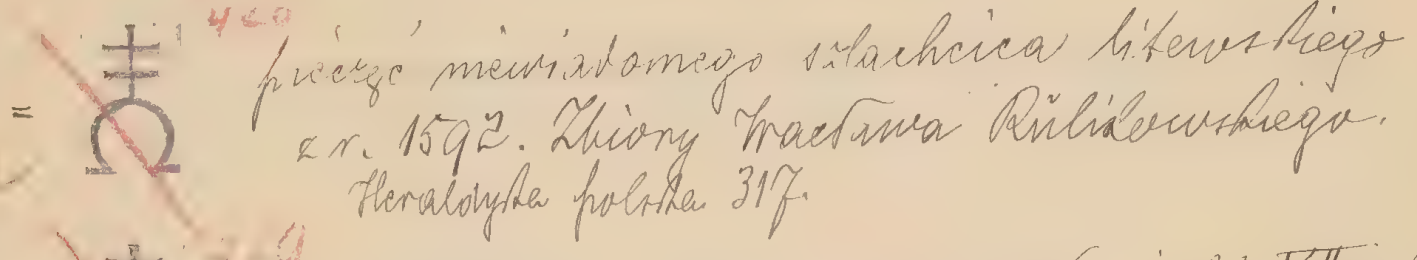 420
pieczęć niewiadomego szlachcica litewskiego
= z r. 1592. Zbiory Wacława Rulikowskiego.
Heraldyka polska 317.